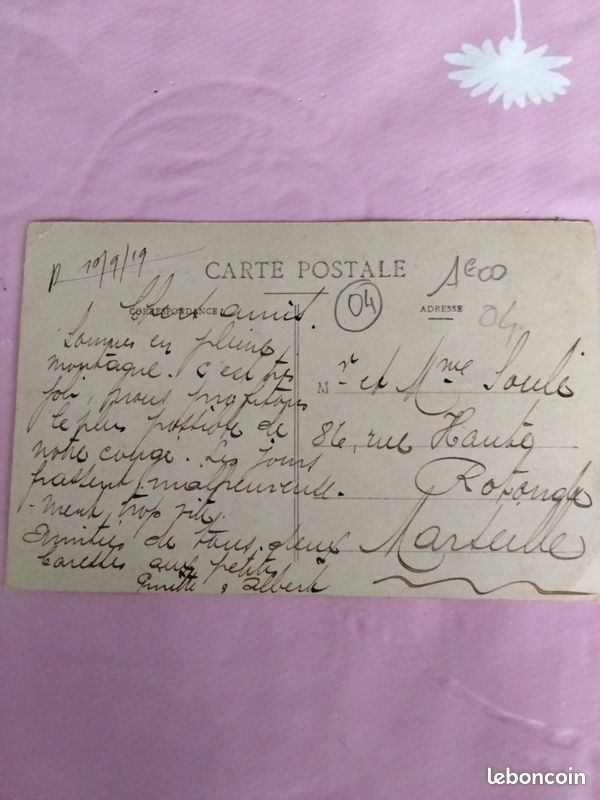 10/9/19
CARTE POSTALE
1e00
04
CORRESPONDANCE
ADRESSE
04
Chers amis.
Sommes en pleine
montagne. C'est très
joli, nous profitons
le plus possible de
notre congé. Les jours
passent, malheureuse-
ment, trop vite.
Amitiés de tous deux
Caresses aux petits
Albert
M r et Mme Soulé
86, rue Haute
Rotonde
Marseille
leboncoin